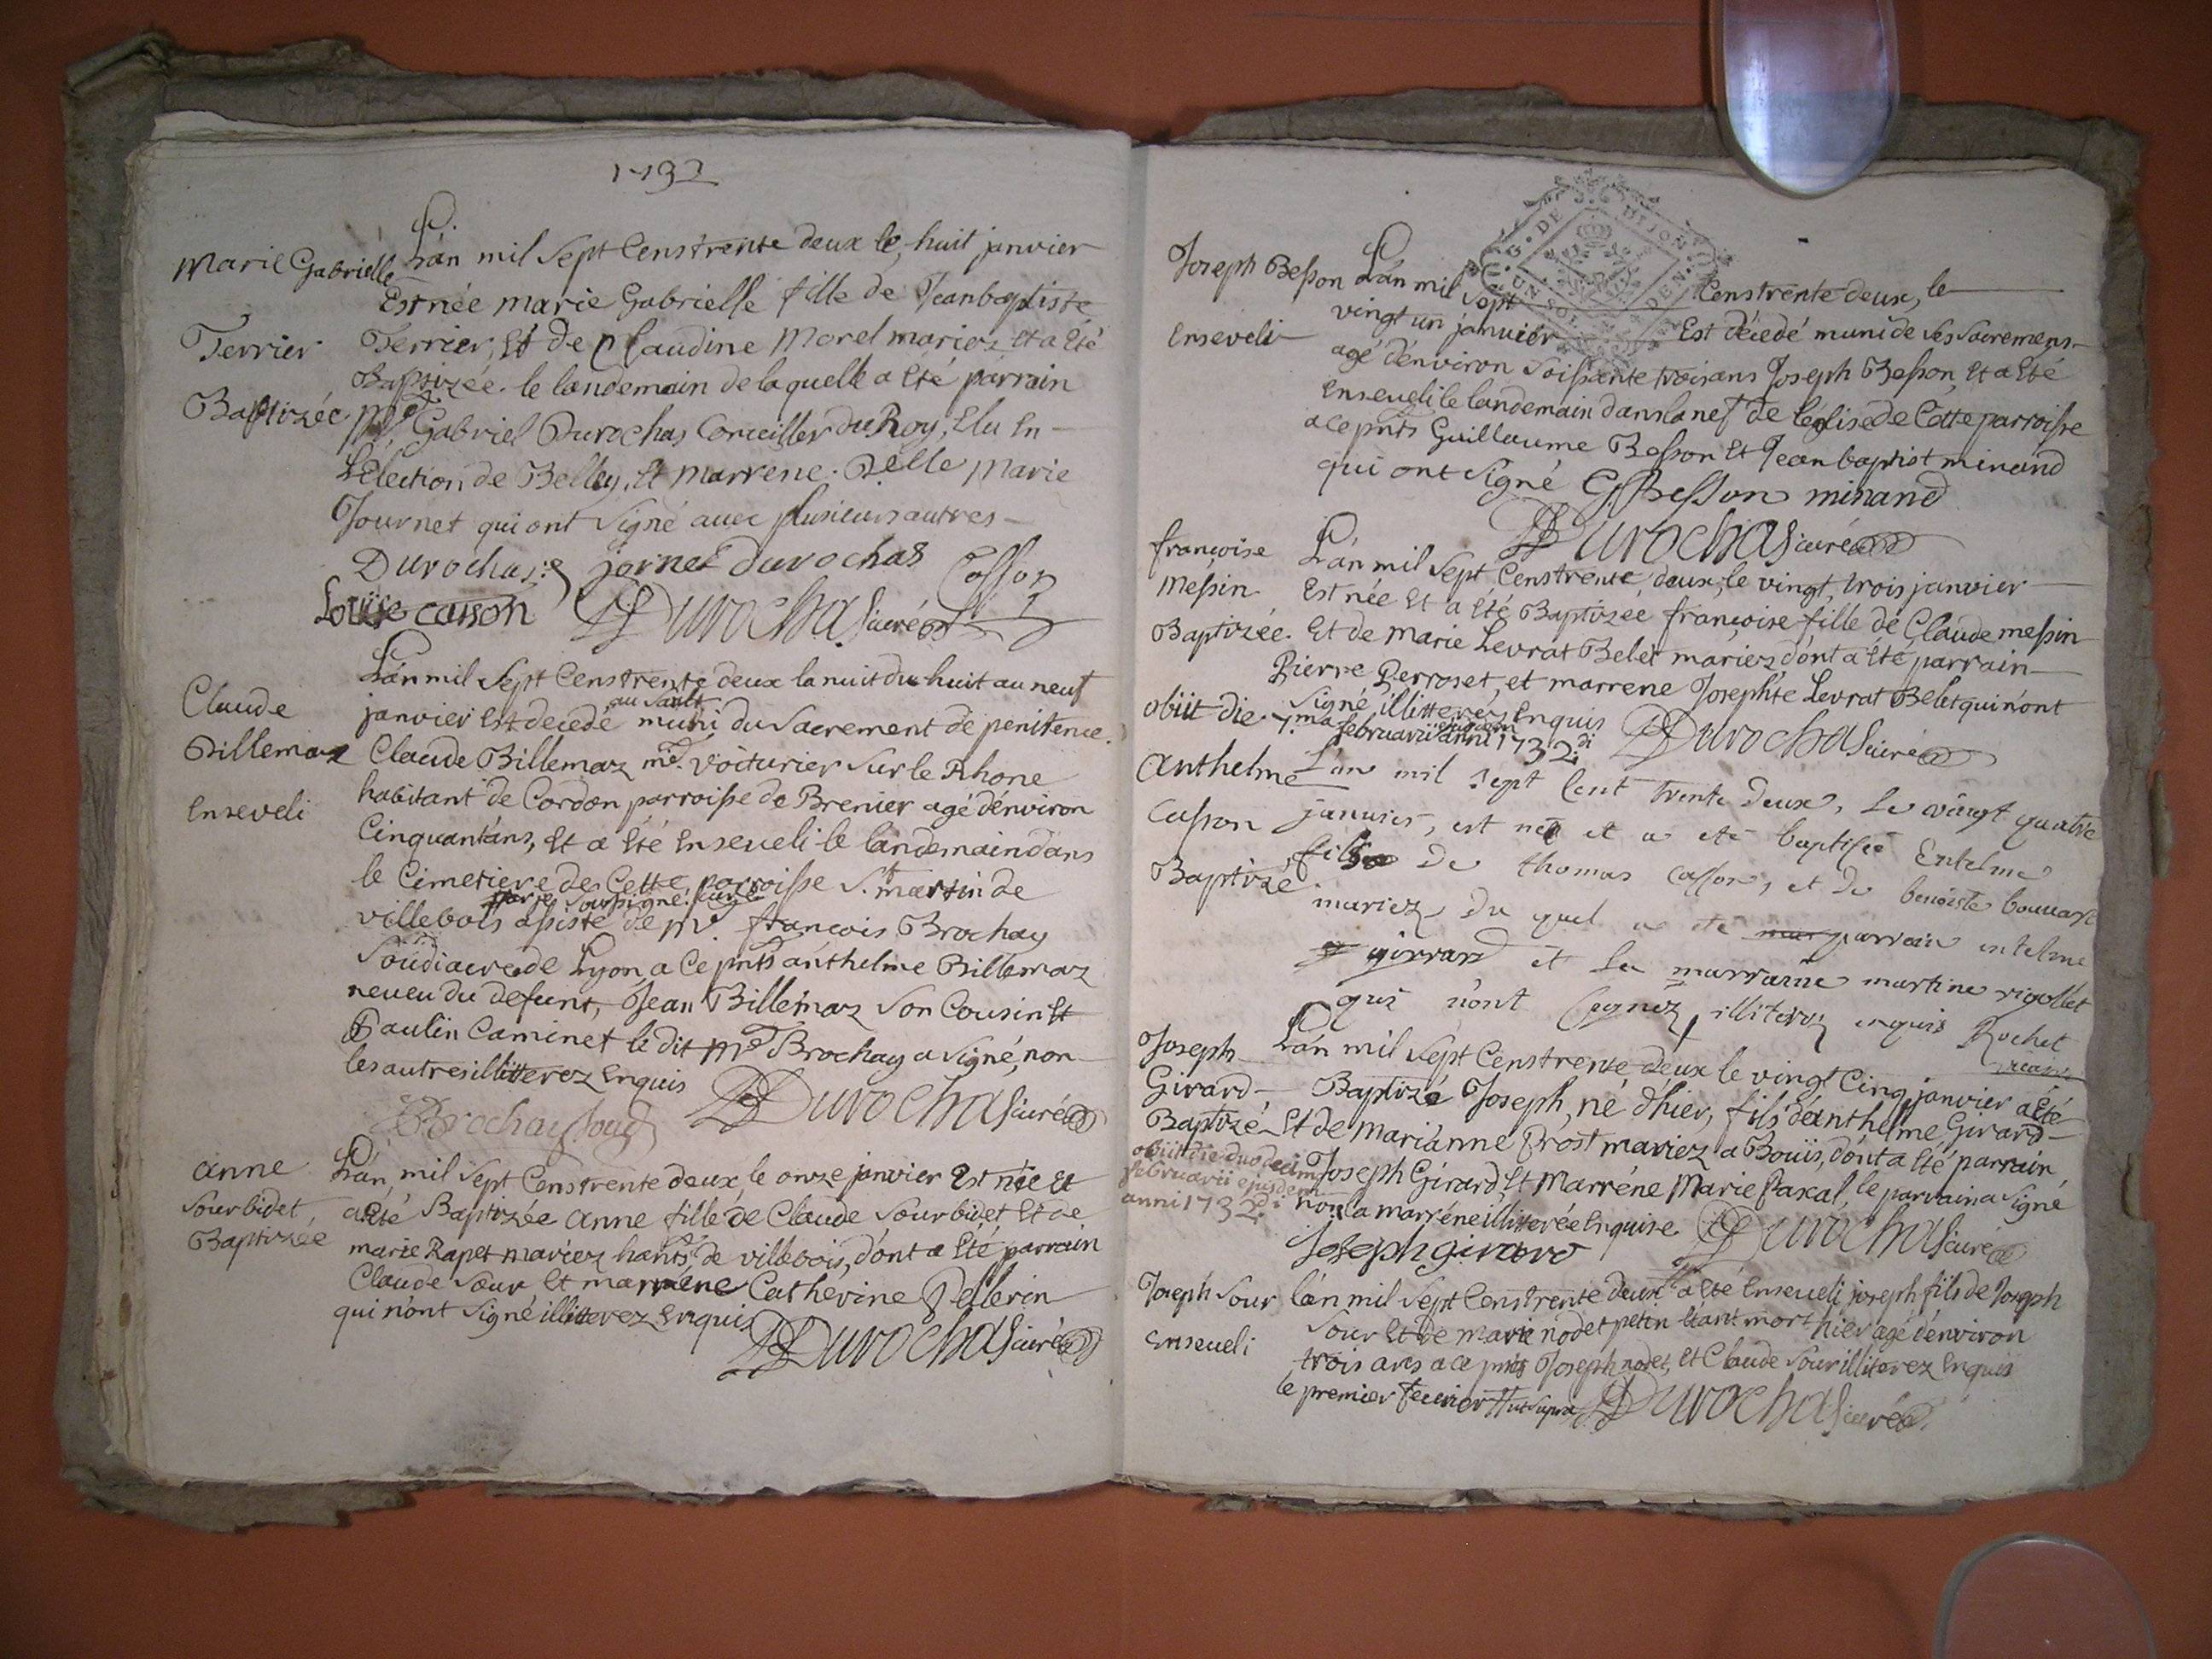 1732
Marie Gabrielle
Terrier
Baptizée
L'an mil Sept Cens trente deux le huit janvier
Est née Marie Gabrielle fille de Jeanbaptiste
Terrier, Et de Claudine Morel mariez Et a Eté
Baptizée le landemain de laquelle a Eté parrain
Mr Gabriel Durochas Conseiller du Roy, Elu En
L'Election de Belley, Et marrene Delle Marie
Journet qui ont Signé avec plusieurs autres
Durochas jornet Durochas Casson
Louise casson Durochas curé
Claude
Billemaz
Enseveli
L'an mil Sept Cens trente deux la nuit du huit au neuf
au Sault
janvier Est decedé muni du Sacrement de penitence
Claude Billemaz md. voiturier Sur le Rhone
habitant de Cordon parroisse de Brenier agé d'environ
Cinquant'ans, Et a Eté Enseveli le landemain dans
le Cimetiere de Cette parroisse St. martin de
par je soussigné curé
villebois assisté de Mr françois Brochay
Soudiacre de Lyon, a Ce pnts anthelme Billemaz
neveu du defunt, Jean Billemaz Son Cousin Et
Paulin Caminet le dit Mr Brochay a Signé, non
les autres illitterez Enquis
Brochay Soud Durochas curé
anne
Sourbidet
Baptizée
L'an mil Sept Cens trente deux, le onze janvier Est née Et
a Eté Baptizée anne fille de Claude Sourbidet Et de
marie Rapet mariez hants de villebois, d'ont a Eté parrain
Claude Sour Et marrene Catherine Pellerin
qui n'ont Signé illitterez Enquis
Durochas curé
G. DE DIJON
UN SOL DEN.
Joseph Besson
Enseveli
L'an mil Sept Cens trente deux, le
vingt un janvier Est décedé muni de Ses Sacremens
agé d'environ Soissante trois ans Joseph Besson, Et a Eté
Enseveli le landemain dans la nef de l'eglise de Cette parroisse
a Ce pnts Guillaume Besson Et Jeanbaptist minand
qui ont Signé G Besson minand
Durochas curé
françoise
Messin
Baptizée
L'an mil Sept Cens trente deux, le vingt trois janvier
Est née Et a Eté Baptizée françoise fille de Claude messin
Et de Marie Levrat Belet mariez d'ont a Eté parrain
Pierre Perroset, et marrene Josephte Levrat Belet qui n'ont
Signé illitterez Enquis Durochas curé
obiit die 7ma februarii ejusdem anni 1732di
Anthelme
Casson
Baptizé
L'an mil sept cent trente deux, le vingt quatre
janvier, est né et a eté baptisé Entelme
fils de thomas casson, et de benoiste bouvart
mariez du quel a eté parrain entelme
girrard et la marraine martine rigollet
qui n'ont signez illiterez enquis Rochet
vicaire
Joseph
Girard
Baptizé
L'an mil Sept Cens trente deux le vingt Cinq janvier a Eté
Baptizé Joseph, né d'hier, fils d'anthelme Girard
Et de Marianne Prost mariez a Bouis, d'ont a Eté parrain
Joseph Girard, Et Marréne Marie Pascal, le parrain a Signé
non la marréne illitterée Enquise. Durochas curé
Joseph girard
obiit die duodecima
februarii ejusdem
anni 1732di
Joseph Sour
Enseveli
L'an mil Sept Cens trente deux a Eté Enseveli joseph fils de Joseph
Sour Et de Marie nodet petin Etant mort hier agé d'environ
trois ans a Ce pnts Joseph nodet, Et Claude Sour illiterez Enquis
le premier fevrier ut supra Durochas curé